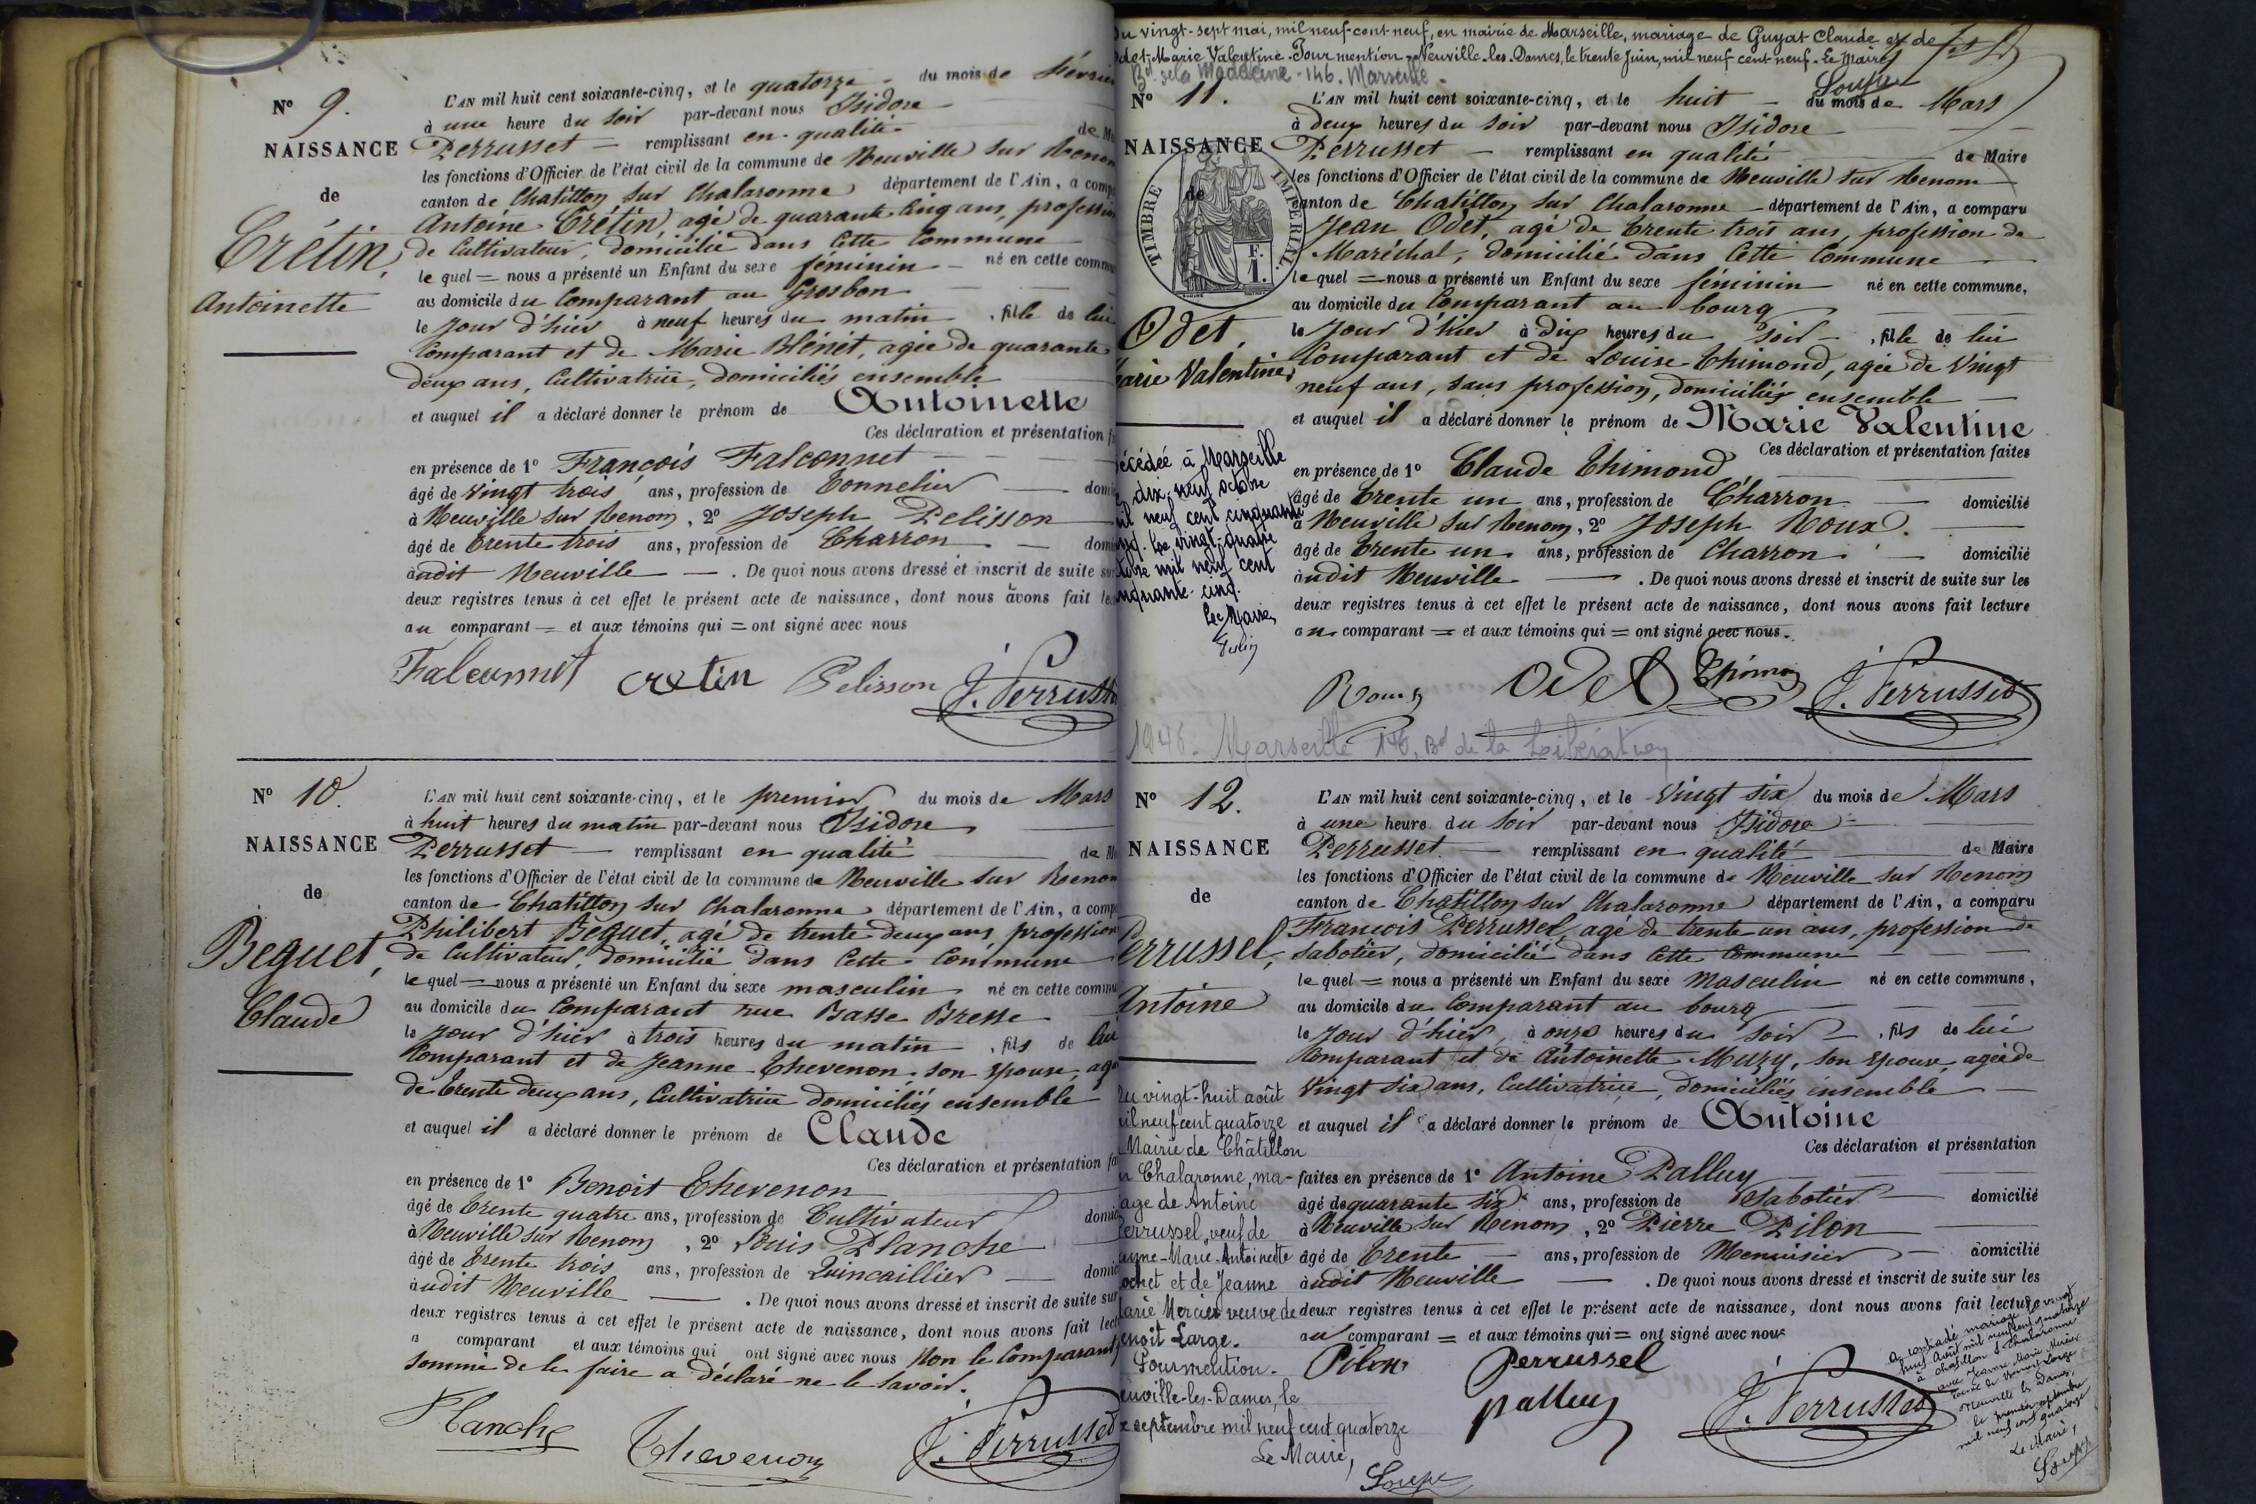 N° 9.
NAISSANCE
de
Crétin,
Antoinette
L'AN mil huit cent soixante-cinq, et le quatorze du mois de Février
à une heure du soir par-devant nous Isidore
Perrusset remplissant en qualité de
les fonctions d'Officier de l'état civil de la commune de Neuville sur Renom
canton de Chatillon sur Chalaronne département de l'Ain, a comp
Antoine Crétin, agé de quarante cinq ans, profession
de Cultivateur, domicilié dans Cette Commune
le quel = nous a présenté un Enfant du sexe féminin né en cette comm
au domicile du Comparant au Grosbon
le Jour d'hier à neuf heures du matin , fille de lui
Comparant et de Marie Blénet, agée de quarante
deux ans, Cultivatrice, domiciliés ensemble
et auquel il a déclaré donner le prénom de Antoinette
Ces déclaration et présentation
en présence de 1° François Falconnet
âgé de vingt trois ans, profession de Tonnelier domi
à Neuville sur Renom, 2° Joseph Pelisson
âgé de trente trois ans, profession de Charron domi
audit Neuville . De quoi nous avons dressé et inscrit de suite sur
deux registres tenus à cet effet le présent acte de naissance, dont nous avons fait
au comparant = et aux témoins qui = ont signé avec nous
Falconnet cretin Pelisson J. Perrusset
N° 10.
NAISSANCE
de
Beguet,
Claude
L'AN mil huit cent soixante-cinq, et le premier du mois de Mars
à huit heures du matin par-devant nous Isidore
Perrusset remplissant en qualité de
les fonctions d'Officier de l'état civil de la commune de Neuville sur Renom
canton de Chatillon sur Chalaronne département de l'Ain, a comp
Philibert Beguet, agé de trente deux ans, profession
de Cultivateur, domicilié dans Cette Commune
le quel = nous a présenté un Enfant du sexe masculin né en cette commu
au domicile du Comparant rue Basse Bresse
le Jour d'hier à trois heures du matin , fils de lui
Comparant et de Jeanne Thevenon son épouse, agé
de trente deux ans, Cultivatrice domiciliés ensemble
et auquel il a déclaré donner le prénom de Claude
Ces déclaration et présentation fai
en présence de 1° Benoit Thevenon
âgé de trente quatre ans, profession de Cultivateur domic
à Neuville sur Renom, 2° Louis Planche
âgé de trente trois ans, profession de Quincaillier domic
audit Neuville . De quoi nous avons dressé et inscrit de suite sur
deux registres tenus à cet effet le présent acte de naissance, dont nous avons fait lect
a comparant et aux témoins qui ont signé avec nous Non le Comparant
sommé de le faire a déclaré ne le savoir.
Planche Thevenon J. Perrusset
Du vingt-sept mai, mil neuf cent neuf, en mairie de Marseille, mariage de Guyat Claude et de
Odet Marie Valentine. Pour mention Neuville-les-Dames, le trente Juin, mil neuf cent neuf. Le Maire
Soupe
Bd de la Madeleine - 146. Marseille.
N° 11.
NAISSANCE
de
TIMBRE IMPERIAL.
F.
1.
Odet,
Marie Valentine,
L'AN mil huit cent soixante-cinq, et le huit du mois de Mars
à deux heures du soir par-devant nous Isidore
Perrusset remplissant en qualité de Maire
les fonctions d'Officier de l'état civil de la commune de Neuville sur Renom
canton de Chatillon sur Chalaronne département de l'Ain, a comparu
Jean Odet, agé de trente trois ans, profession de
Maréchal, domicilié dans Cette Commune
le quel = nous a présenté un Enfant du sexe féminin né en cette commune,
au domicile du Comparant au bourg
le Jour d'hier à dix heures du soir , fille de lui
Comparant et de Louise Thimond, agée de vingt
neuf ans, sans profession, domiciliés ensemble
et auquel il a déclaré donner le prénom de Marie Valentine
Ces déclaration et présentation faites
en présence de 1° Claude Thimond
âgé de trente un ans, profession de Charron domicilié
à Neuville sur Renom, 2° Joseph Roux.
âgé de trente un ans, profession de Charron domicilié
audit Neuville . De quoi nous avons dressé et inscrit de suite sur les
deux registres tenus à cet effet le présent acte de naissance, dont nous avons fait lecture
au comparant = et aux témoins qui = ont signé avec nous.
Roux Odet Thimon J. Perrusset
écédée à Marseille
dix-neuf octobre
mil neuf cent cinquante
cinq. Le vingt-quatre
octobre mil neuf cent
cinquante-cinq.
Le Maire
1946. Marseille 146, Bd de la Libération
N° 12.
NAISSANCE
de
Perrussel,
Antoine
L'AN mil huit cent soixante-cinq, et le vingt six du mois de Mars
à une heure du soir par-devant nous Isidore
Perrusset remplissant en qualité de Maire
les fonctions d'Officier de l'état civil de la commune de Neuville sur Renom
canton de Chatillon sur Chalaronne département de l'Ain, a comparu
François Perrussel, agé de trente un ans, profession de
sabotier, domicilié dans Cette Commune
le quel = nous a présenté un Enfant du sexe masculin né en cette commune,
au domicile du Comparant au bourg
le Jour d'hier, à onze heures du soir , fils de lui
Comparant et de Antoinette Muzy, son épouse, agée de
vingt six ans, Cultivatrice, domiciliés ensemble
et auquel il a déclaré donner le prénom de Antoine
Ces déclaration et présentation
faites en présence de 1° Antoine Palluy
âgé de quarante six ans, profession de Sabotier domicilié
à Neuville sur Renom, 2° Pierre Pilon
âgé de trente ans, profession de Menuisier domicilié
audit Neuville . De quoi nous avons dressé et inscrit de suite sur les
deux registres tenus à cet effet le présent acte de naissance, dont nous avons fait lecture
au comparant = et aux témoins qui = ont signé avec nous
Pilon Perrussel palluy J. Perrusset
Du vingt-huit août
mil neuf cent quatorze
Mairie de Châtillon
Chalaronne, ma-
iage de Antoine
Perrussel, veuf de
Marie-Antoinette
et de Jeanne
Marie Mercier veuve de
Benoit Large.
Pour mention.
Neuville-les-Dames, le
septembre mil neuf cent quatorze
Le Maire,
Soupe
A contracté mariage le vingt
huit août mil neuf cent quatorze
à Chatillon s/ Chalaronne
avec Jeanne Marie Mercier
veuve de Benoit Large
Neuville les Dames,
le premier septembre
mil neuf cent quatorze
Le Maire,
Soupe